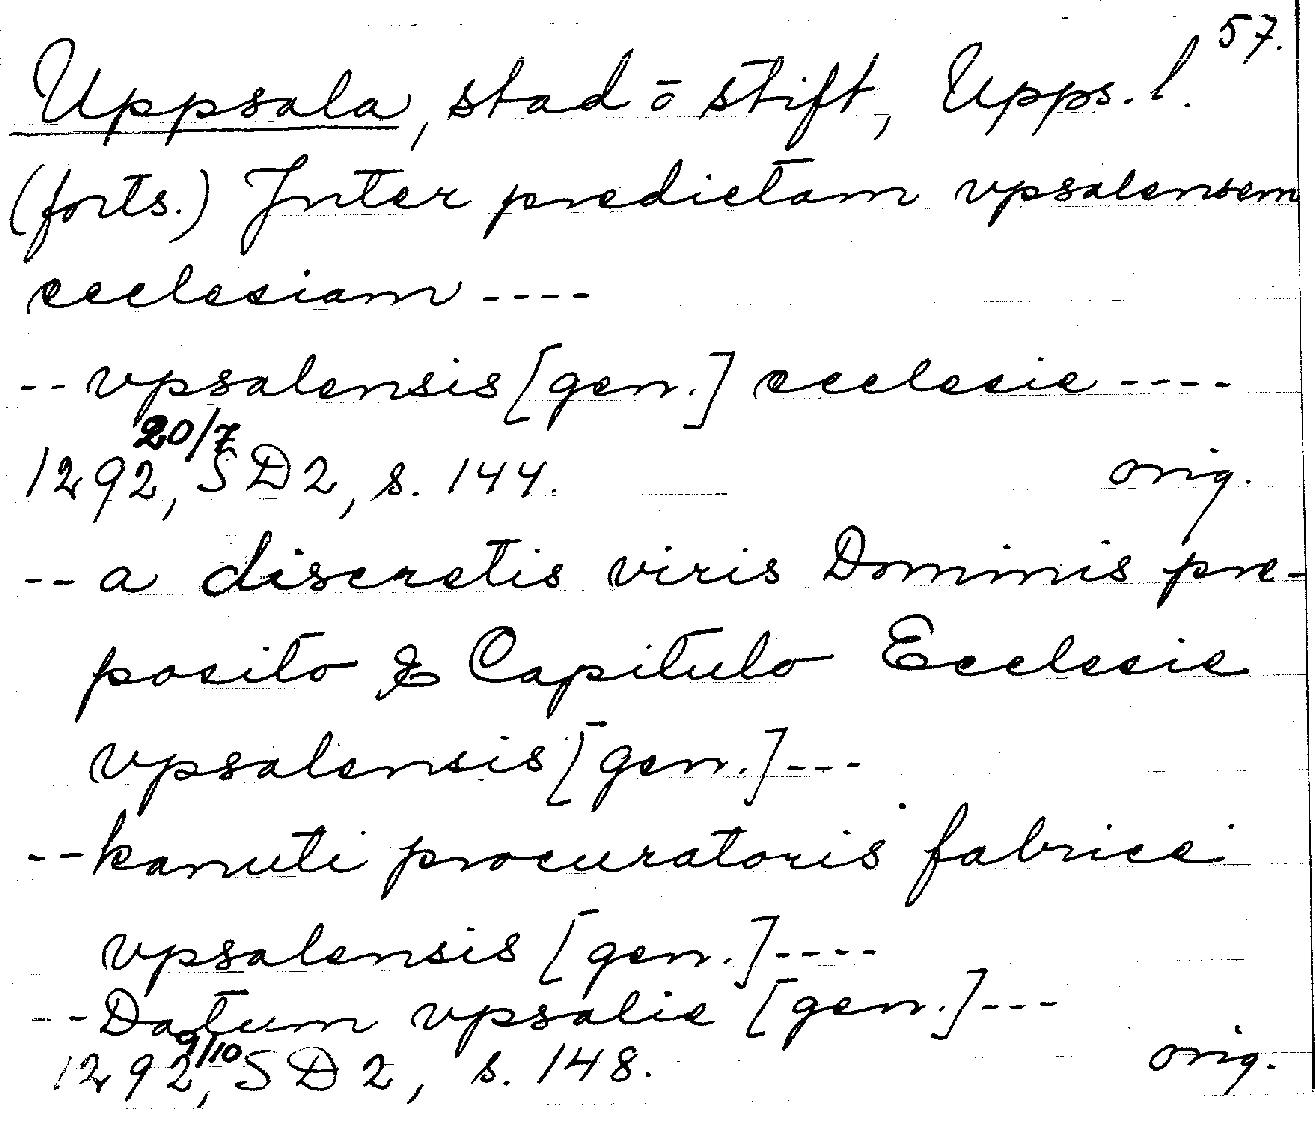 57.
Uppsala, stad ō stift, Upps. l.
(forts.) Inter predictam vpsalensem
ecclesiam ----
-- vpsalensis [gen.] ecclesie ----
20/7
1292, SD2, s. 144. orig.
-- a discretis viris Dominis pre-
posito & Capitulo Ecclesie
vpsalensis [gen.] ---
-- kanuti procuratoris fabrice
vpsalensis [gen.] ----
-- Datum vpsalie [gen.] ---
9/10
1292, SD2, s. 148. orig.